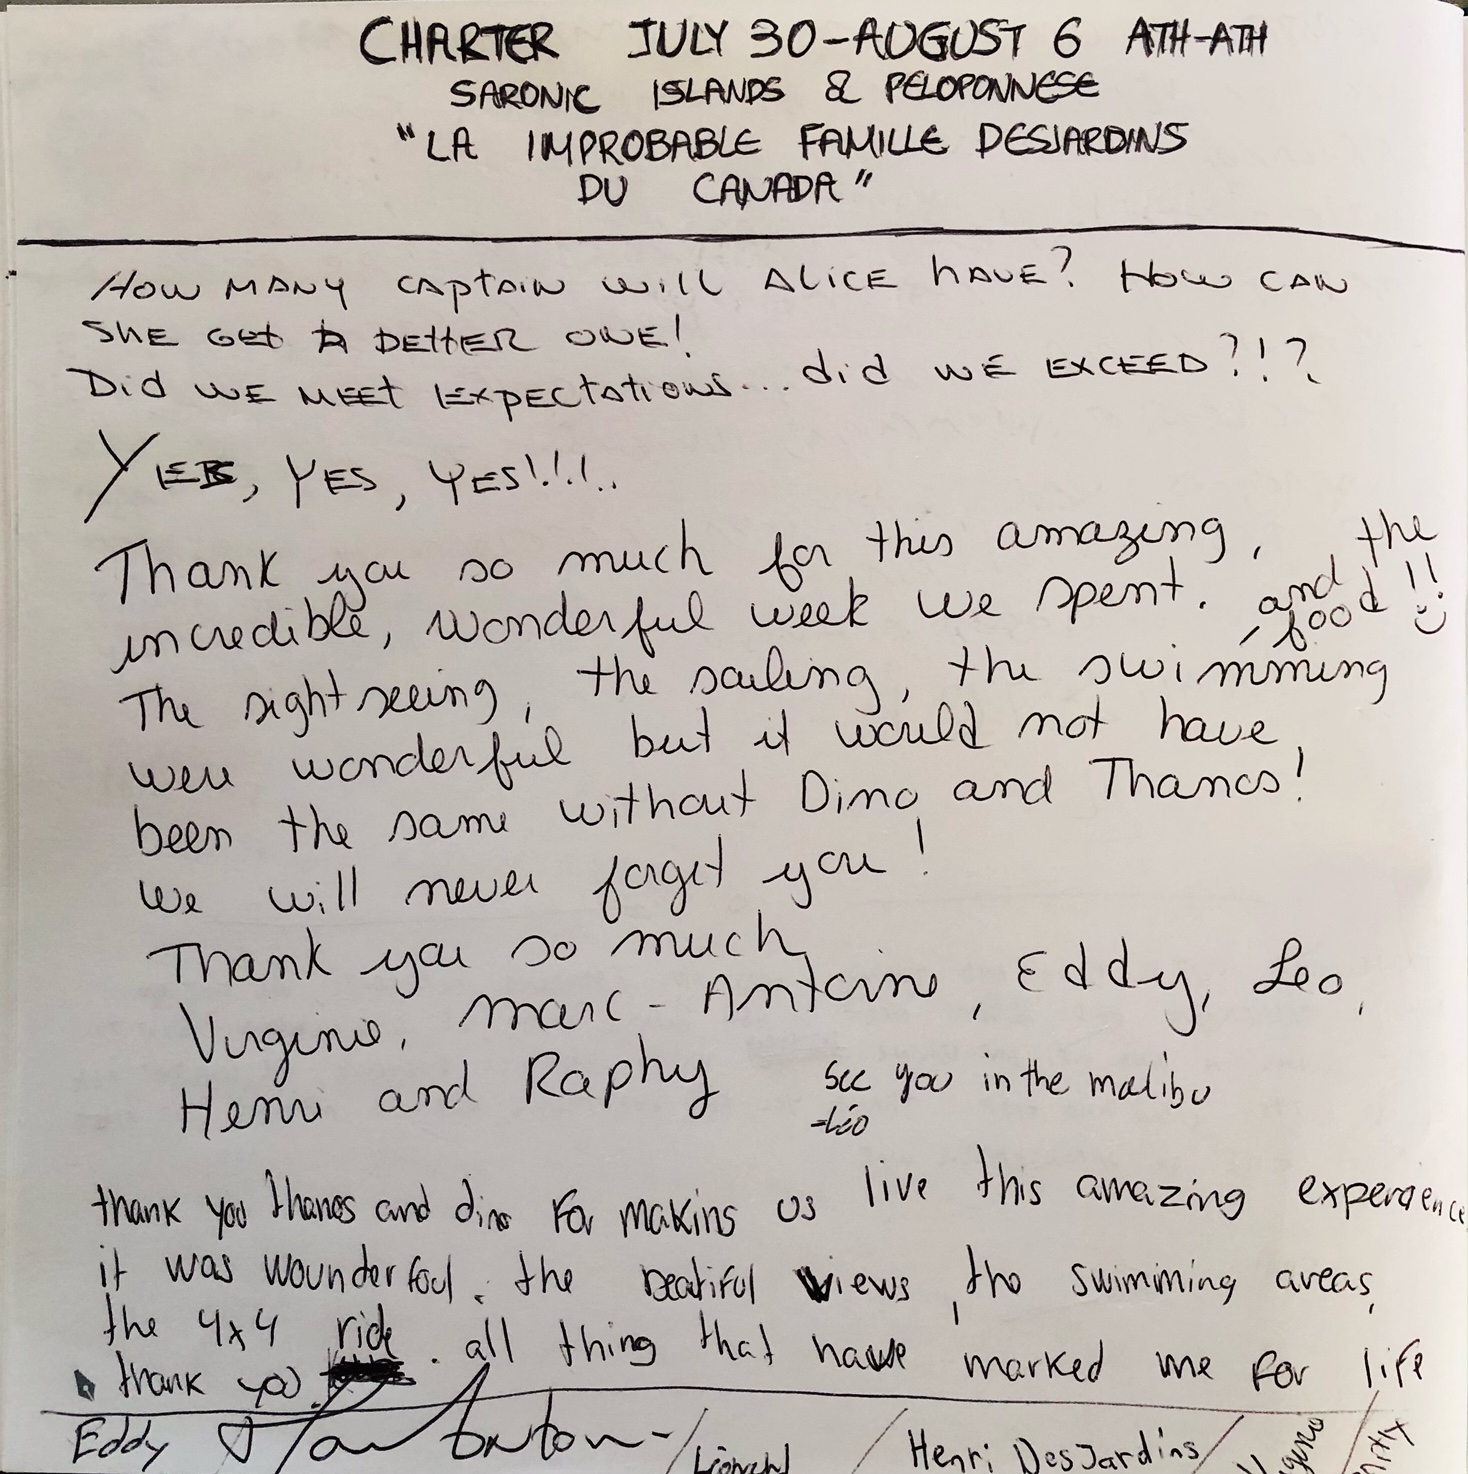 CHARTER JULY 30-AUGUST 6 ATH-ATH
SARONIC ISLANDS & PELOPONNESE
"LA IMPROBABLE FAMILLE DESJARDINS
DU CANADA"
HOW MANY CAPTAIN WILL ALICE HAVE? HOW CAN
SHE GET A BETTER ONE!
Did WE MEET EXPECTATIONS... did WE EXCEED?!?
YES, YES, YES!!!!..
Thank you so much for this amazing,
incredible, wonderful week we spent.
The sightseeing, the sailing, the swimming and the food!!
were wonderful but it would not have
been the same without Dino and Thanos!
We will never forget you!
Thank you so much
Virginie, Marc-Antoine, Eddy, Leo,
Henri and Raphy
See you in the malibu
-Léo
thank you thanos and dino For making us live this amazing experience
it was wounderfoul. the beatiful views, the swimming areas,
the 4x4 ride. all thing that have marked me for life
thank you.
Eddy
Henri DesJardins